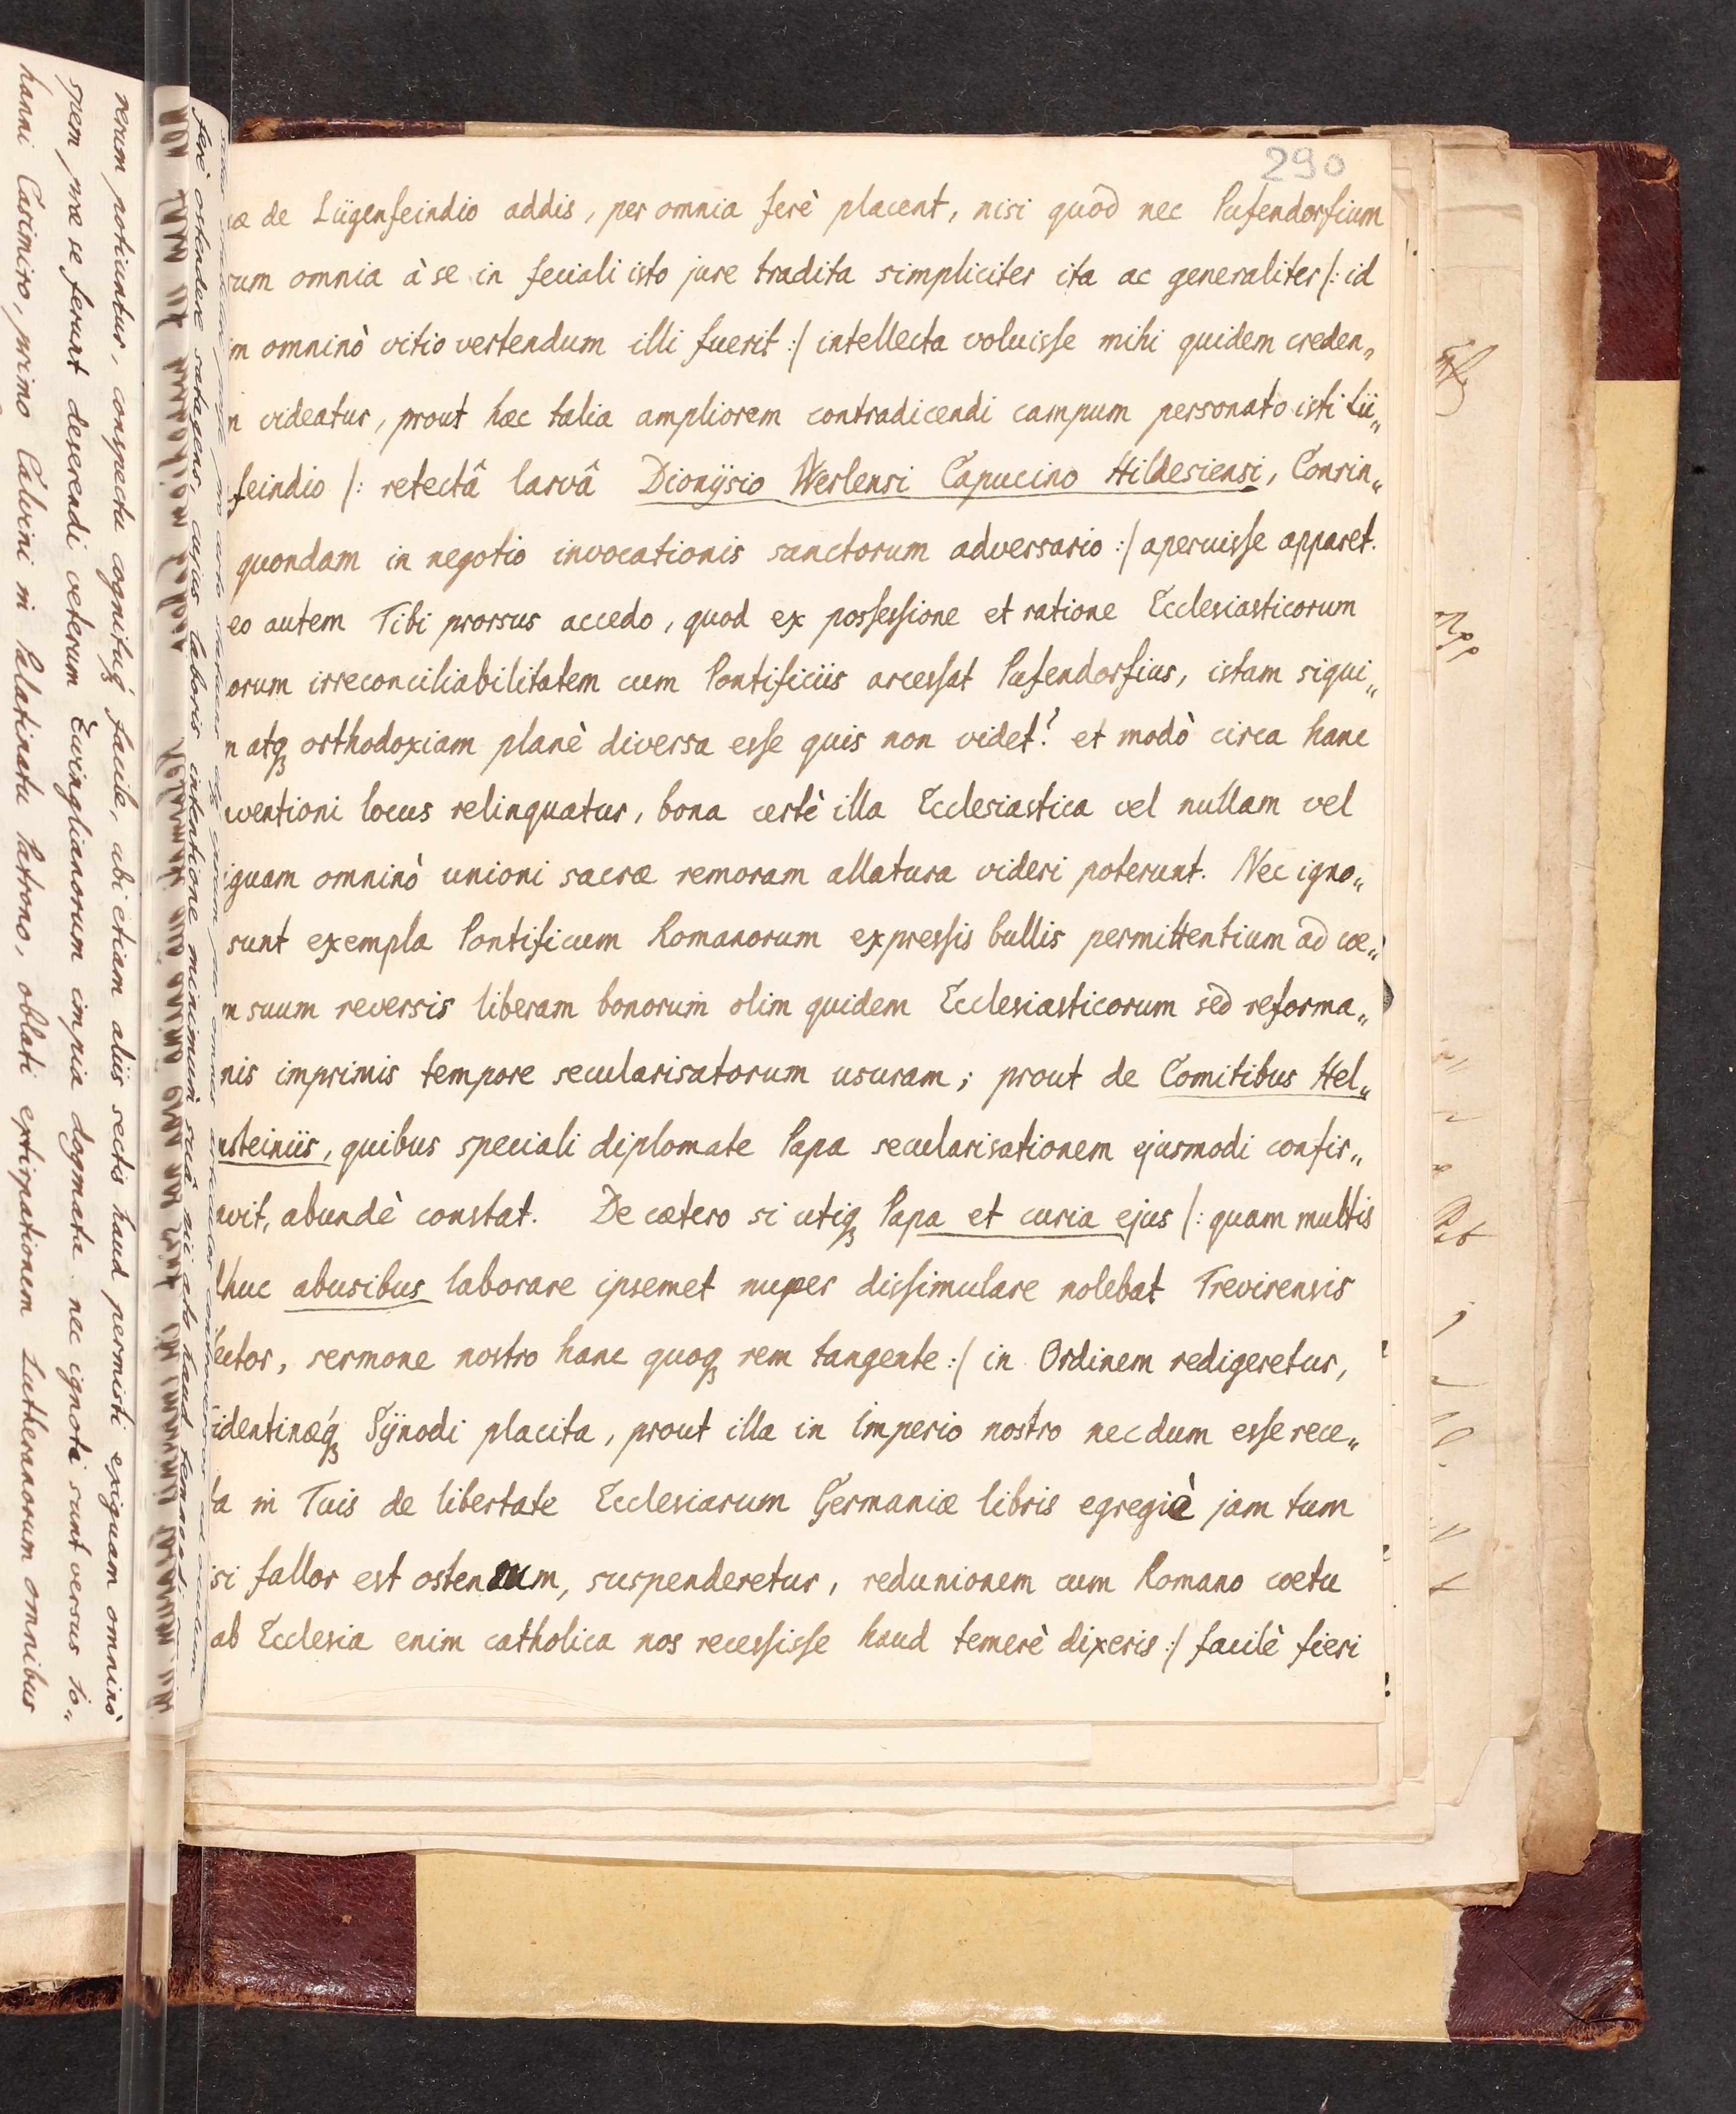 290
æ de Lügenfeindio addis, per omnia ferè placent, nisi quod nec Pufendorfium
rum omnia à se in feciali isto jure tradita simpliciter ita ac generaliter /: id
m omninò vitio vertendum illi fuerit :/ intellecta voluisse mihi quidem creden„
n videatur, prout hæc talia ampliorem contradicendi campum personato isti Lü„
feindio /: retectâ larvâ Dionÿsio Werlensi Capucino Hildesiensi, Consin„
quondam in negotio invocationis sanctorum adversario :/ aperuisse apparet.
eo autem Tibi prorsus accedo, quod ex possessione et ratione Ecclesiasticorum
orum irreconciliabilitatem cum Pontificiis arcessat Pufendorfius, istam siqui„
n atq; orthodoxiam planè diversa esse quis non videt? et modò circa hanc
ventioni locus relinquatur, bona certè illa Ecclesiastica vel nullam vel
iguam omninò unioni sacræ remoram allatura videri poterunt. Nec igno„
sunt exempla Pontificum Romanorum expressis bullis permittentium ad cœ„
m suum reversis liberam bonorum olim quidem Ecclesiasticorum sed reforma„
nis imprimis tempore secularisatorum usuram; prout de Comitibus Hel„
nsteiniis, quibus speciali diplomate Papa secularisationem ejusmodi confir„
avit, abundè constat. De cætero si utiq; Papa et curia ejus /: quam multis
dhuc abusibus laborare ipsemet nuper dissimulare nolebat Trevirensis
ector, sermone nostro hanc quoq; rem tangente :/ in Ordinem redigeretur,
identinæq́; Sÿnodi placita, prout illa in Imperio nostro necdum esse rece„
ta in Tuis de libertate Ecclesiarum Germaniæ libris egregiè jam tum
isi fallor est ostensum, suspenderetur, redunionem cum Romano coetu
ab Ecclesia enim catholica nos recessisse haud temerè dixeris :/ facilè fieri
ferè ostendere satagens, cujus laboris intentione minimum suâ
rerum potiuntur, conspectu cognituq́; facile, ubi etiam aliis sectis haud permisti exiguam omninò
spem præ se ferunt deserendi veterum Zwinglianorum impia dogmata. nec ignota sunt versus Jo„
hanni Casimiro, primo Calvini in Palatinatu Patrono, oblati extirpationem Lutheranorum omnibus